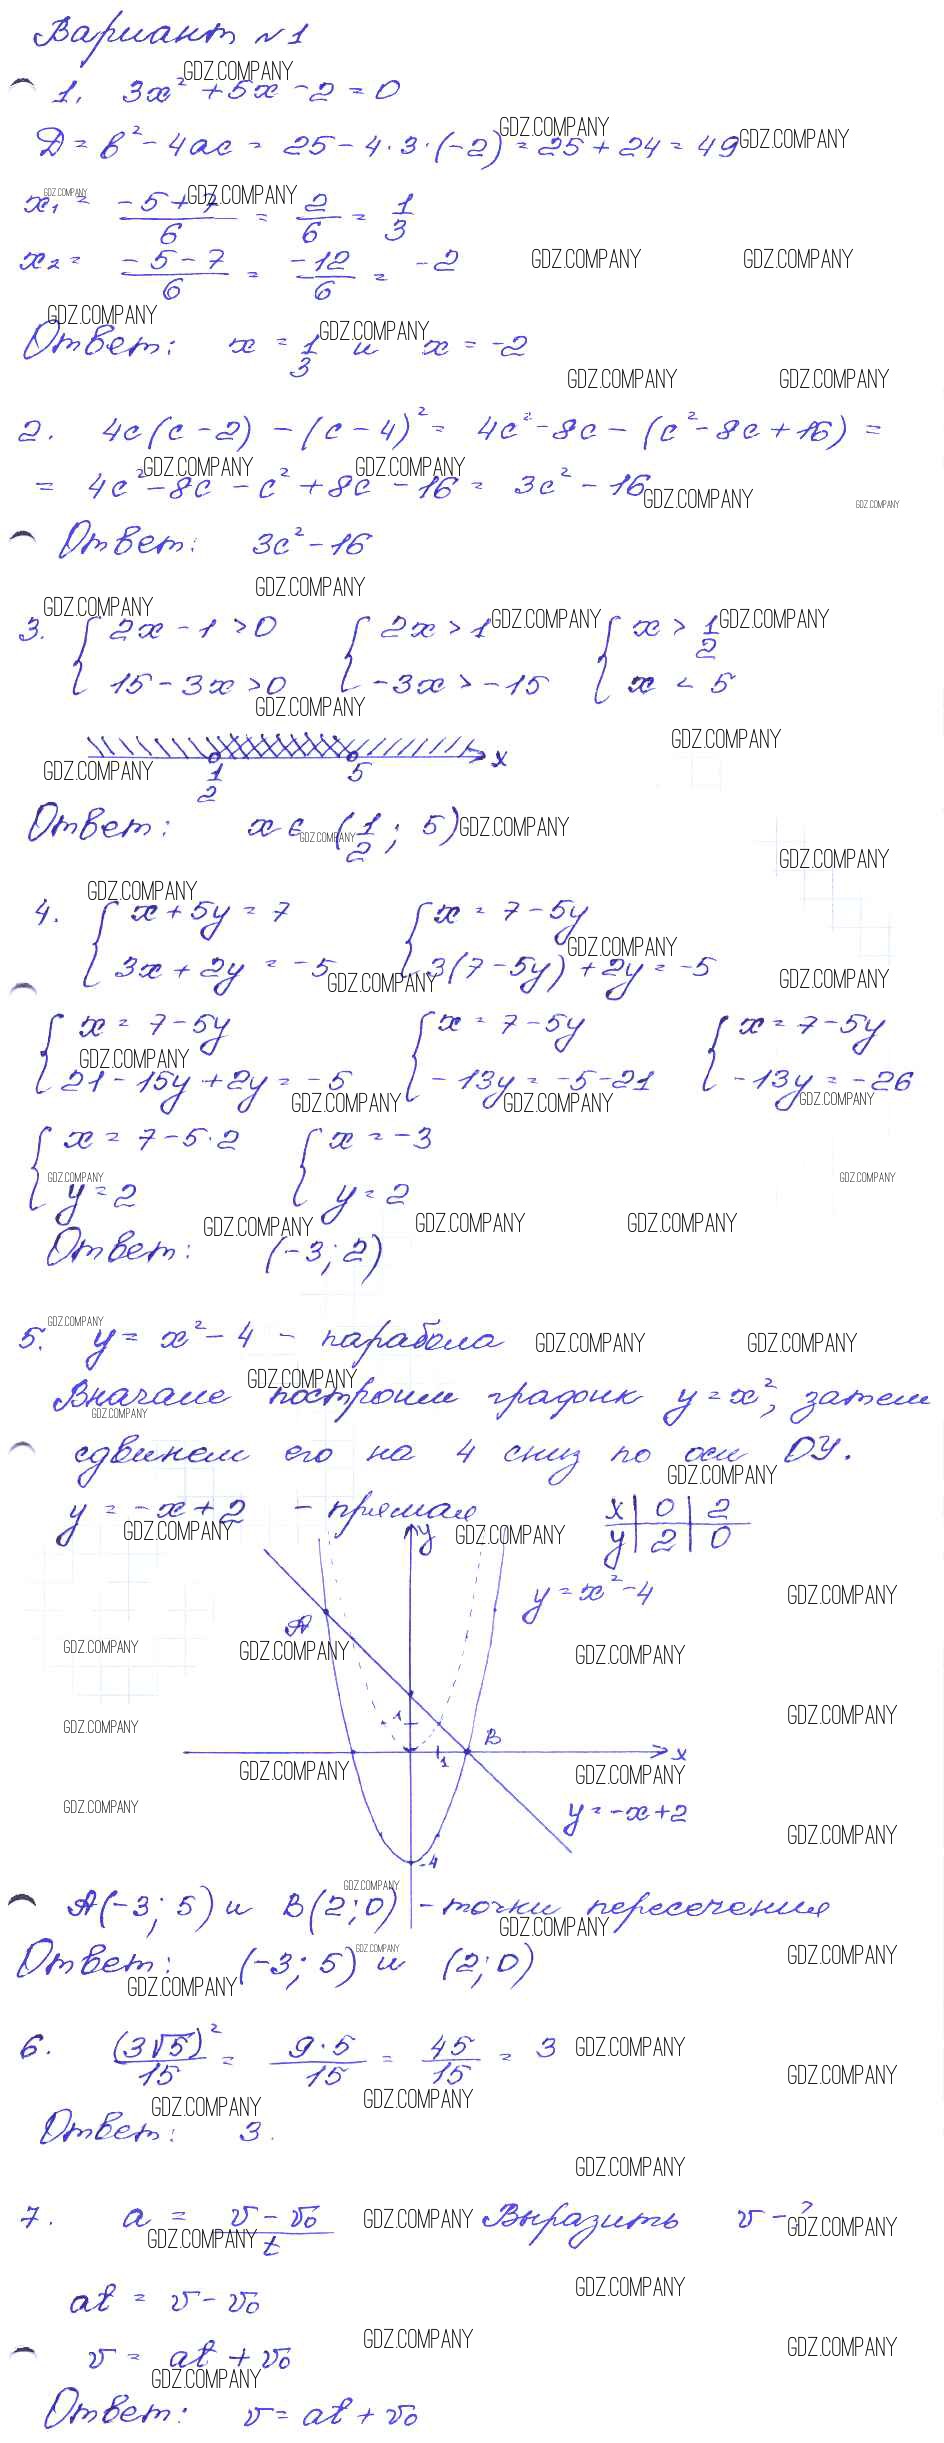 Вариант №1
GDZ.COMPANY
1. 3x² + 5x - 2 = 0
D = b² - 4ac = 25 - 4·3·(-2) = 25 + 24 = 49
x₁ = (-5+7)/6 = 2/6 = 1/3
x₂ = (-5-7)/6 = -12/6 = -2
Ответ: x = 1/3 и x = -2
2. 4c(c-2) - (c-4)² = 4c² - 8c - (c² - 8c + 16) =
= 4c² - 8c - c² + 8c - 16 = 3c² - 16
Ответ: 3c² - 16
3. { 2x - 1 > 0 { 2x > 1 { x > 1/2
15 - 3x > 0 -3x > -15 x < 5
1/2 5 x
Ответ: x ∈ (1/2; 5)
4. { x + 5y = 7 { x = 7 - 5y
3x + 2y = -5 3(7 - 5y) + 2y = -5
{ x = 7 - 5y { x = 7 - 5y { x = 7 - 5y
21 - 15y + 2y = -5 -13y = -5 - 21 -13y = -26
{ x = 7 - 5·2 { x = -3
y = 2 y = 2
Ответ: (-3; 2)
5. y = x² - 4 - парабола
Вначале построим график y = x², затем
сдвинем его на 4 сниз по оси OY.
y = -x + 2 - прямая
x | 0 | 2
y | 2 | 0
y
y = x² - 4
A
1
B
1
x
y = -x + 2
-4
A(-3; 5) и B(2; 0) - точки пересечения
Ответ: (-3; 5) и (2; 0)
6. (3√5)²/15 = 9·5/15 = 45/15 = 3
Ответ: 3.
7. a = (v - v₀)/t Выразить v - ?
at = v - v₀
v = at + v₀
Ответ: v = at + v₀